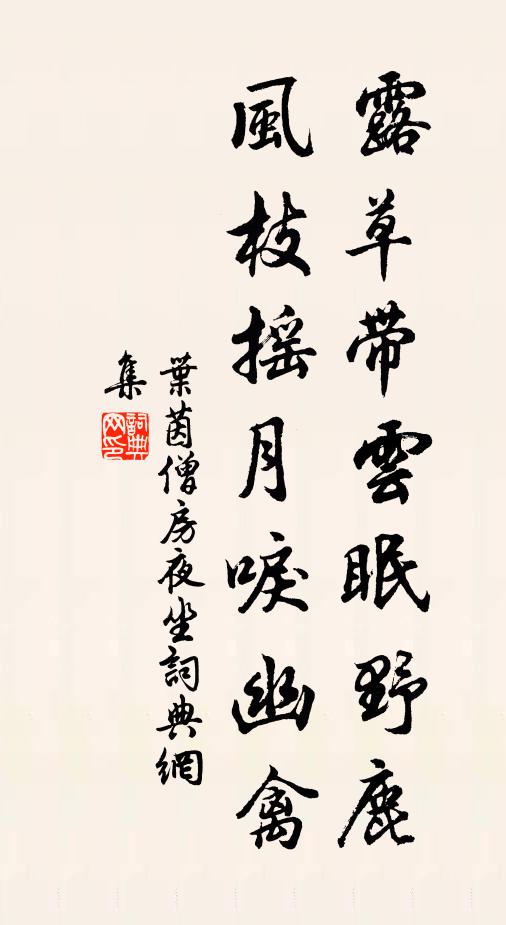 露草帶雲眠野鹿
風枝搖月唳幽禽
葉茵僧房夜坐詞典網
集
詞典
网印